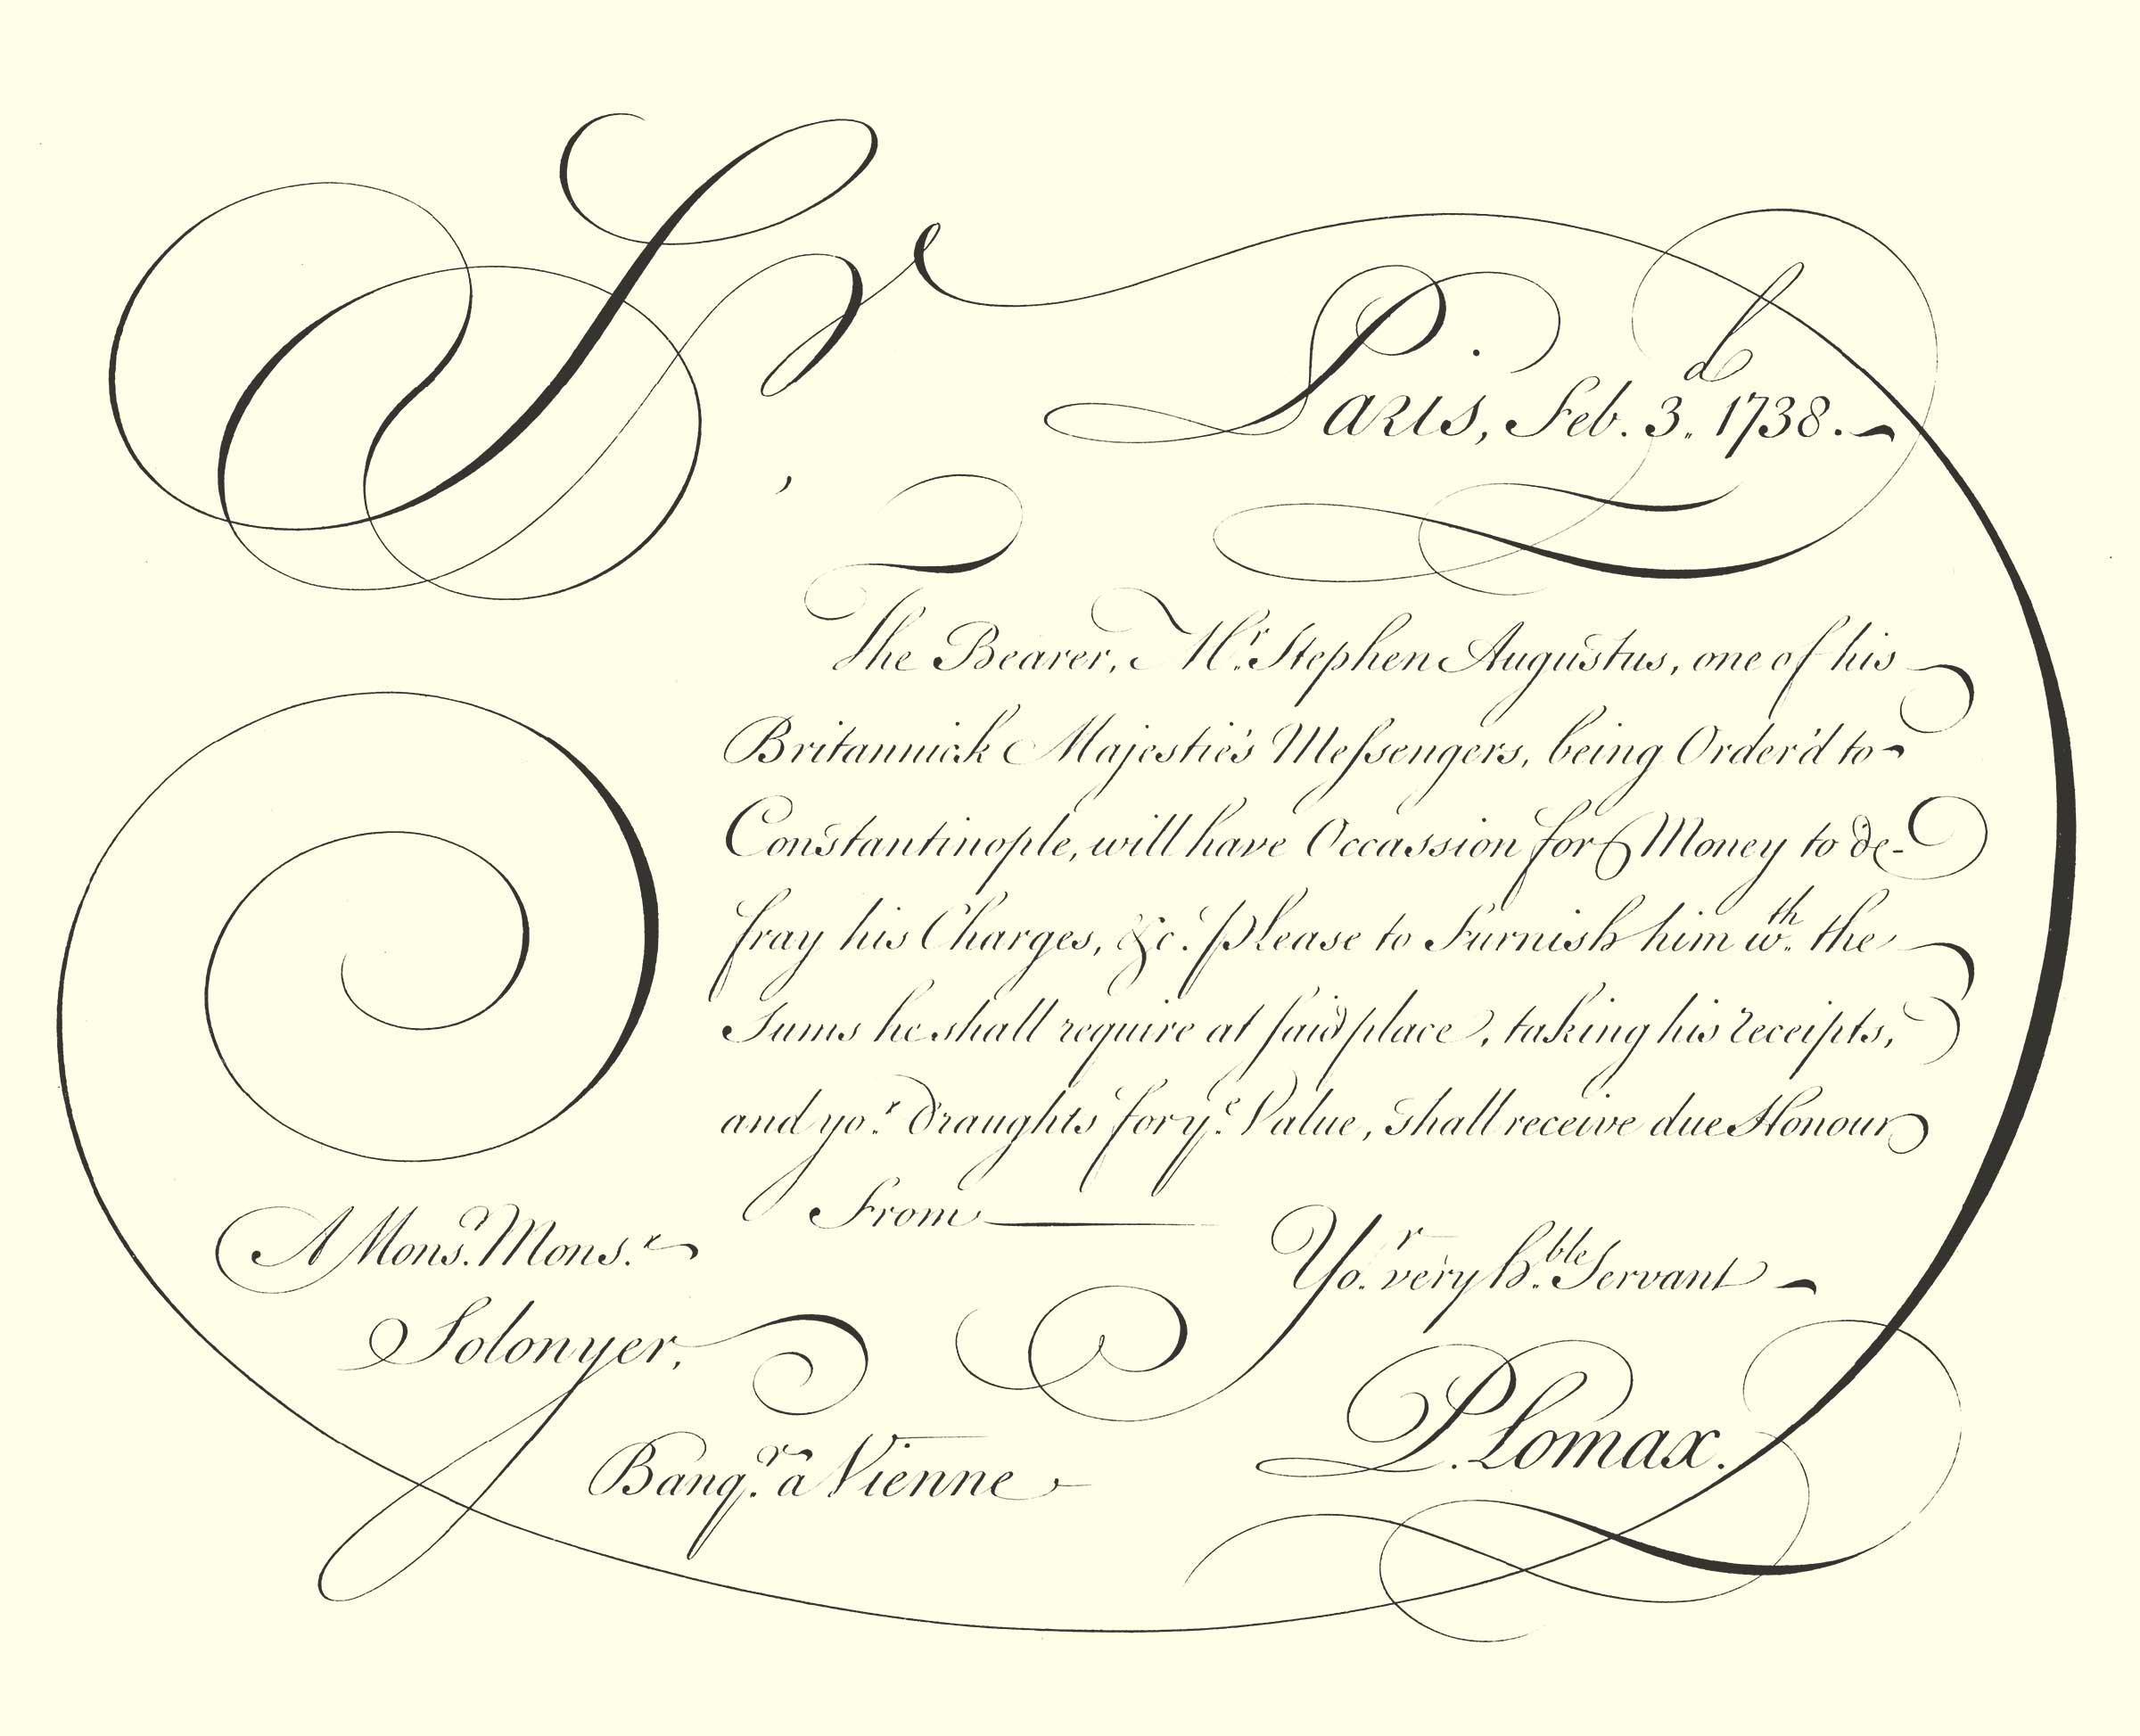 Sr,
Paris, Feb. 3d. 1738.
The Bearer, Mr. Stephen Augustus, one of his
Britannick Majestie's Meſsengers, being Order'd to
Constantinople, will have Occassion for Money to de-
fray his Charges, &c. please to Furnish him wth. the
Sums he shall require at said place, taking his receipts,
and yor. draughts for ye. Value, shall receive due Honour
From
Yor. very h.ble Servant
P. Lomax.
A Monsr. Monsr.
Solonyer,
Banqr. a Vienne